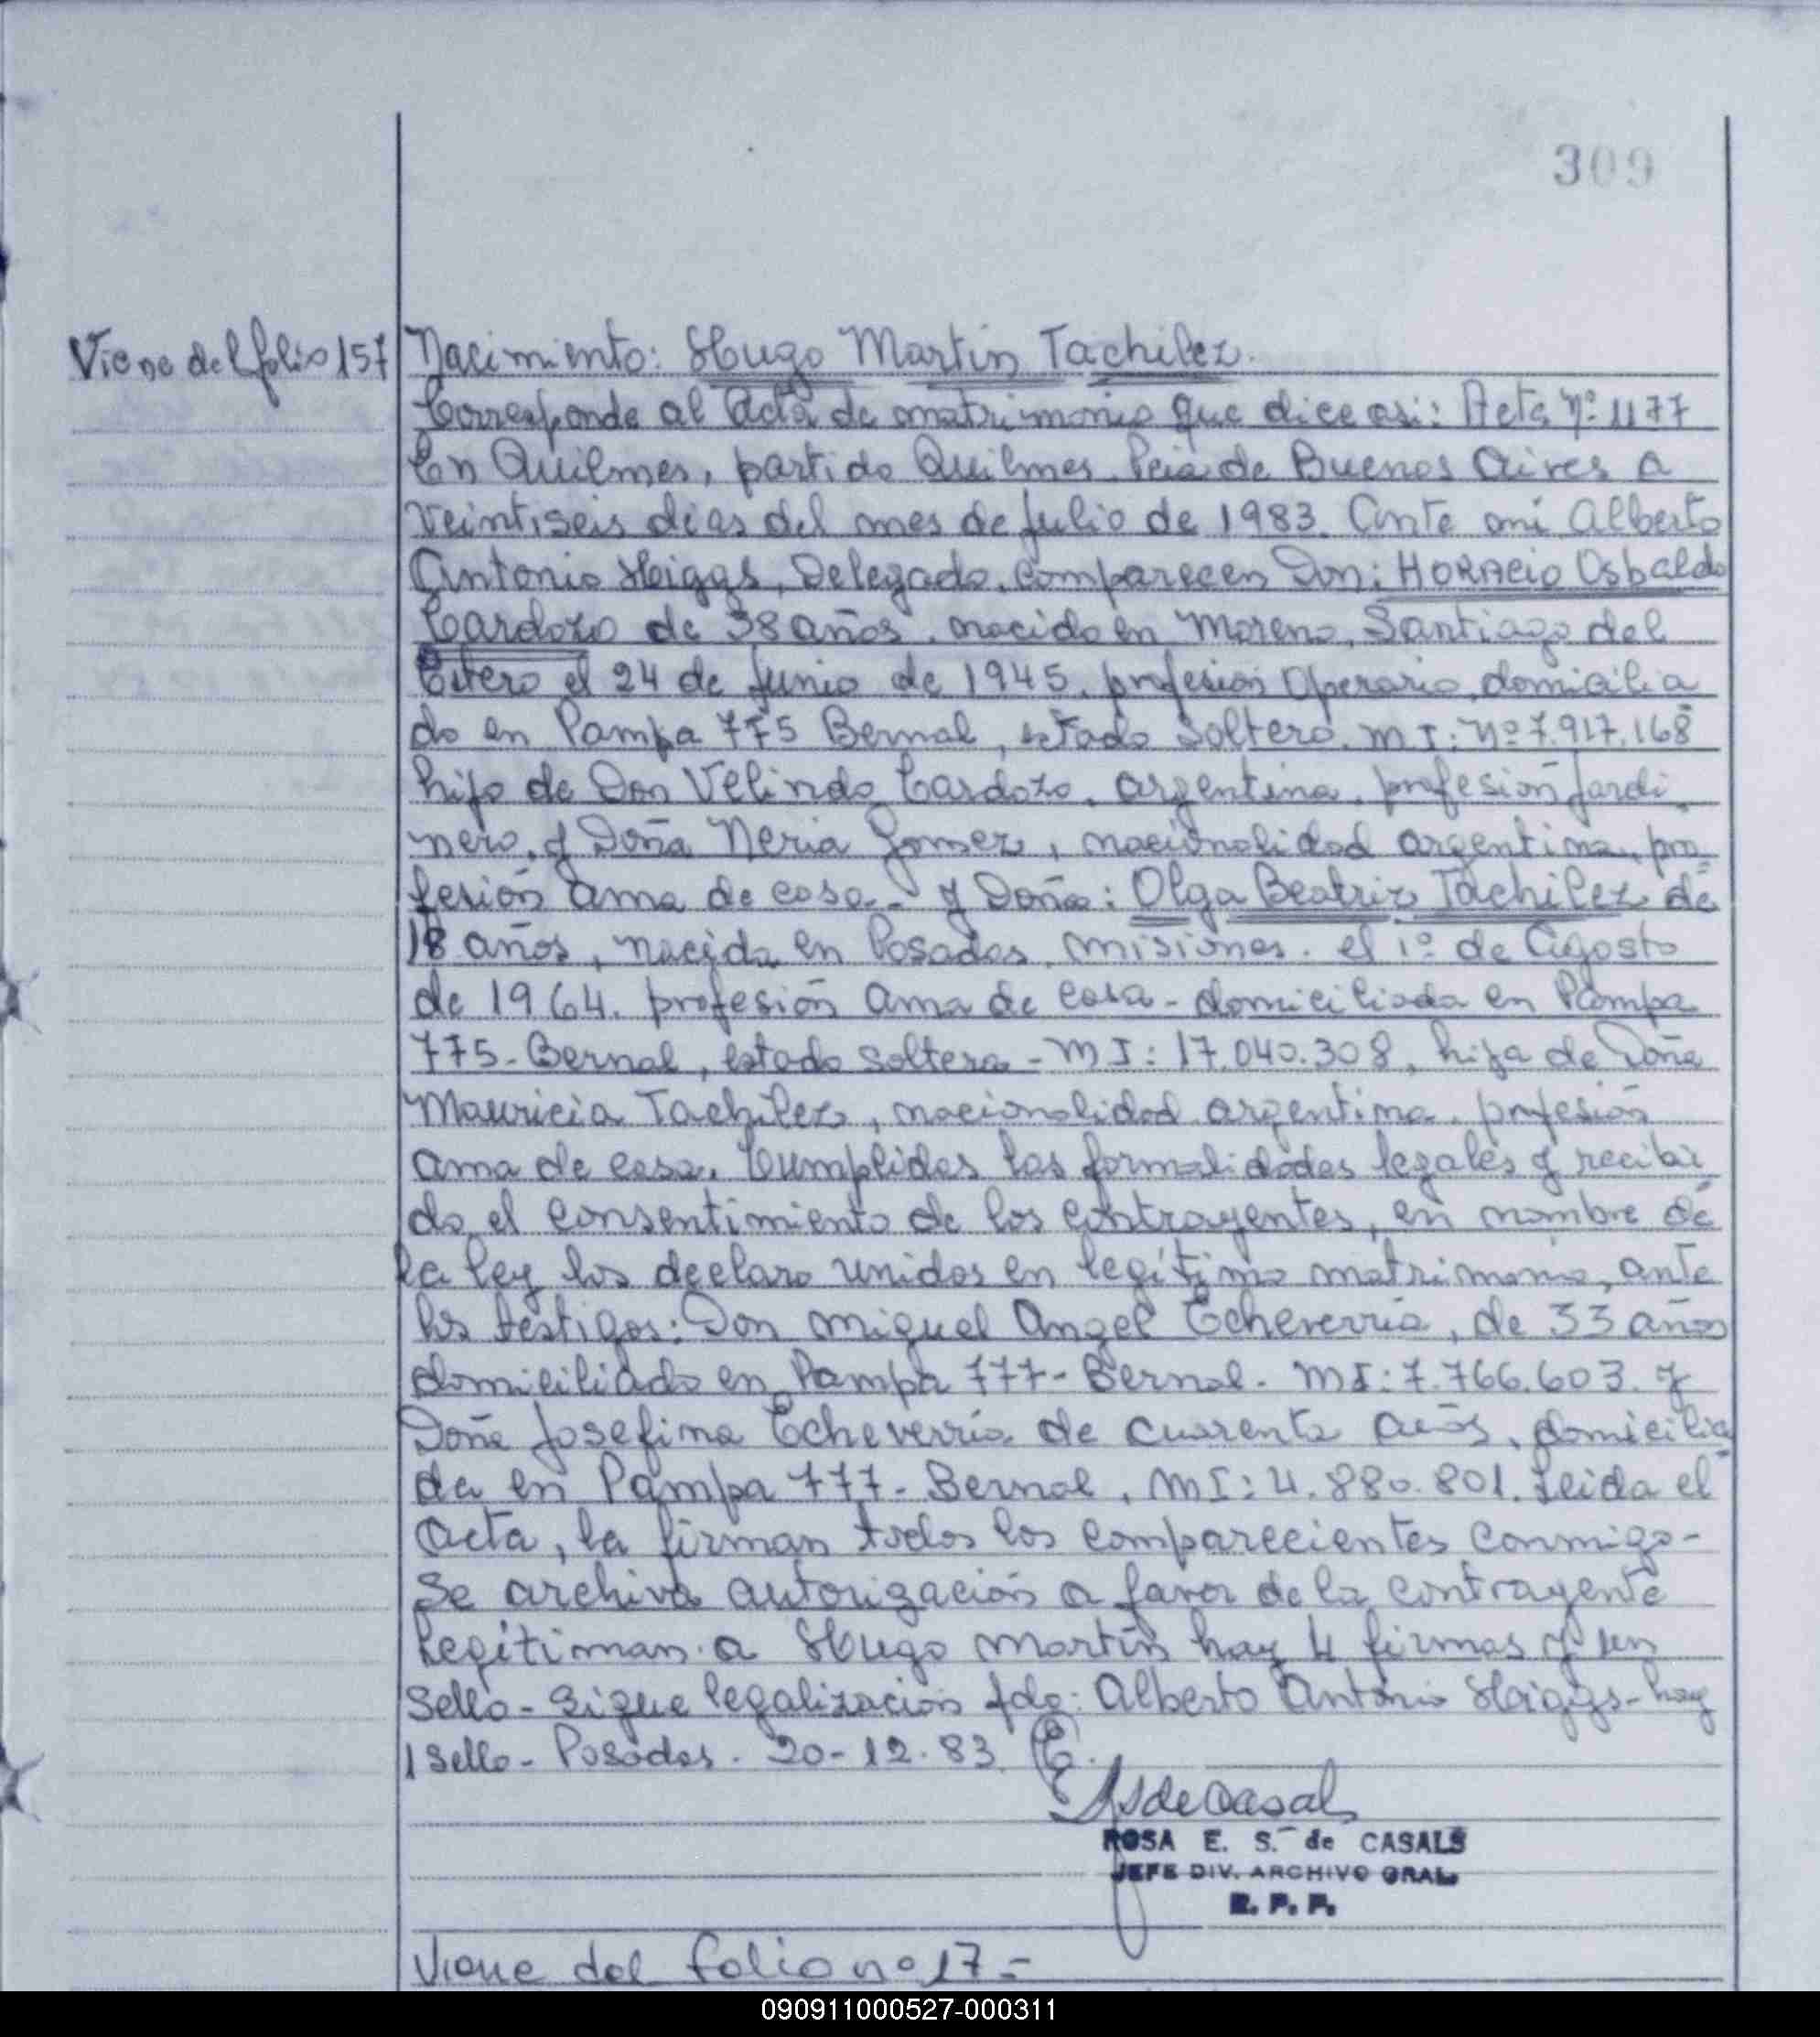 309
Viene del folio 157
Nacimiento: Hugo Martin Tachilez.
Corresponde al Acta de matrimonio que dice asi: Acta Nº 1177
En Quilmes, partido Quilmes Pcia de Buenos Aires a
veintiseis dias del mes de Julio de 1983. Ante mi Alberto
Antonio Higgs, Delegado, comparecen Don: HORACIO Osbaldo
Cardozo de 38 años, nacido en Moreno, Santiago del
Estero el 24 de Junio de 1945, profesión Operario, domicilia
do en Pampa 775 Bernal, estado Soltero. M I: Nº 7.917.168
hijo de Don Velindo Cardozo, argentina, profesión Jardi
nero, y Doña Neria Gomez, nacionalidad argentina, pro
fesión ama de casa.- y Doña: Olga Beatriz Tachilez de
18 años, nacida en Posadas, Misiones. el 1º de Agosto
de 1964. profesión ama de casa - domiciliada en Pampa
775 - Bernal, estado soltera - M I: 17.040.308, hija de Doña
Mauricia Tachilez, nacionalidad argentina, profesión
ama de casa. Cumplidas las formalidades legales y recibi
do el consentimiento de los contrayentes, en nombre de
la ley los declaro unidos en legítimo matrimonio, ante
los testigos: Don Miguel Angel Echeverria, de 33 años
domiciliado en Pampa 777 - Bernal. M I: 7.766.603. y
Doña Josefina Echeverría de cuarenta años, domicilia
da en Pampa 777 - Bernal, M I: 4.880.801. Leida el
acta, la firman todos los comparecientes conmigo -
Se archiva autorización a favor de la contrayente
Legitiman a Hugo Martín hay 4 firmas y un
Sello - Sigue legalización fdo: Alberto Antonio Higgs - hay
1 sello - Posadas. 20-12-83.
de Casals
ROSA E. S. de CASALS
JEFE DIV. ARCHIVO GRAL.
R. P. P.
Viene del folio nº 17 =
090911000527-000311